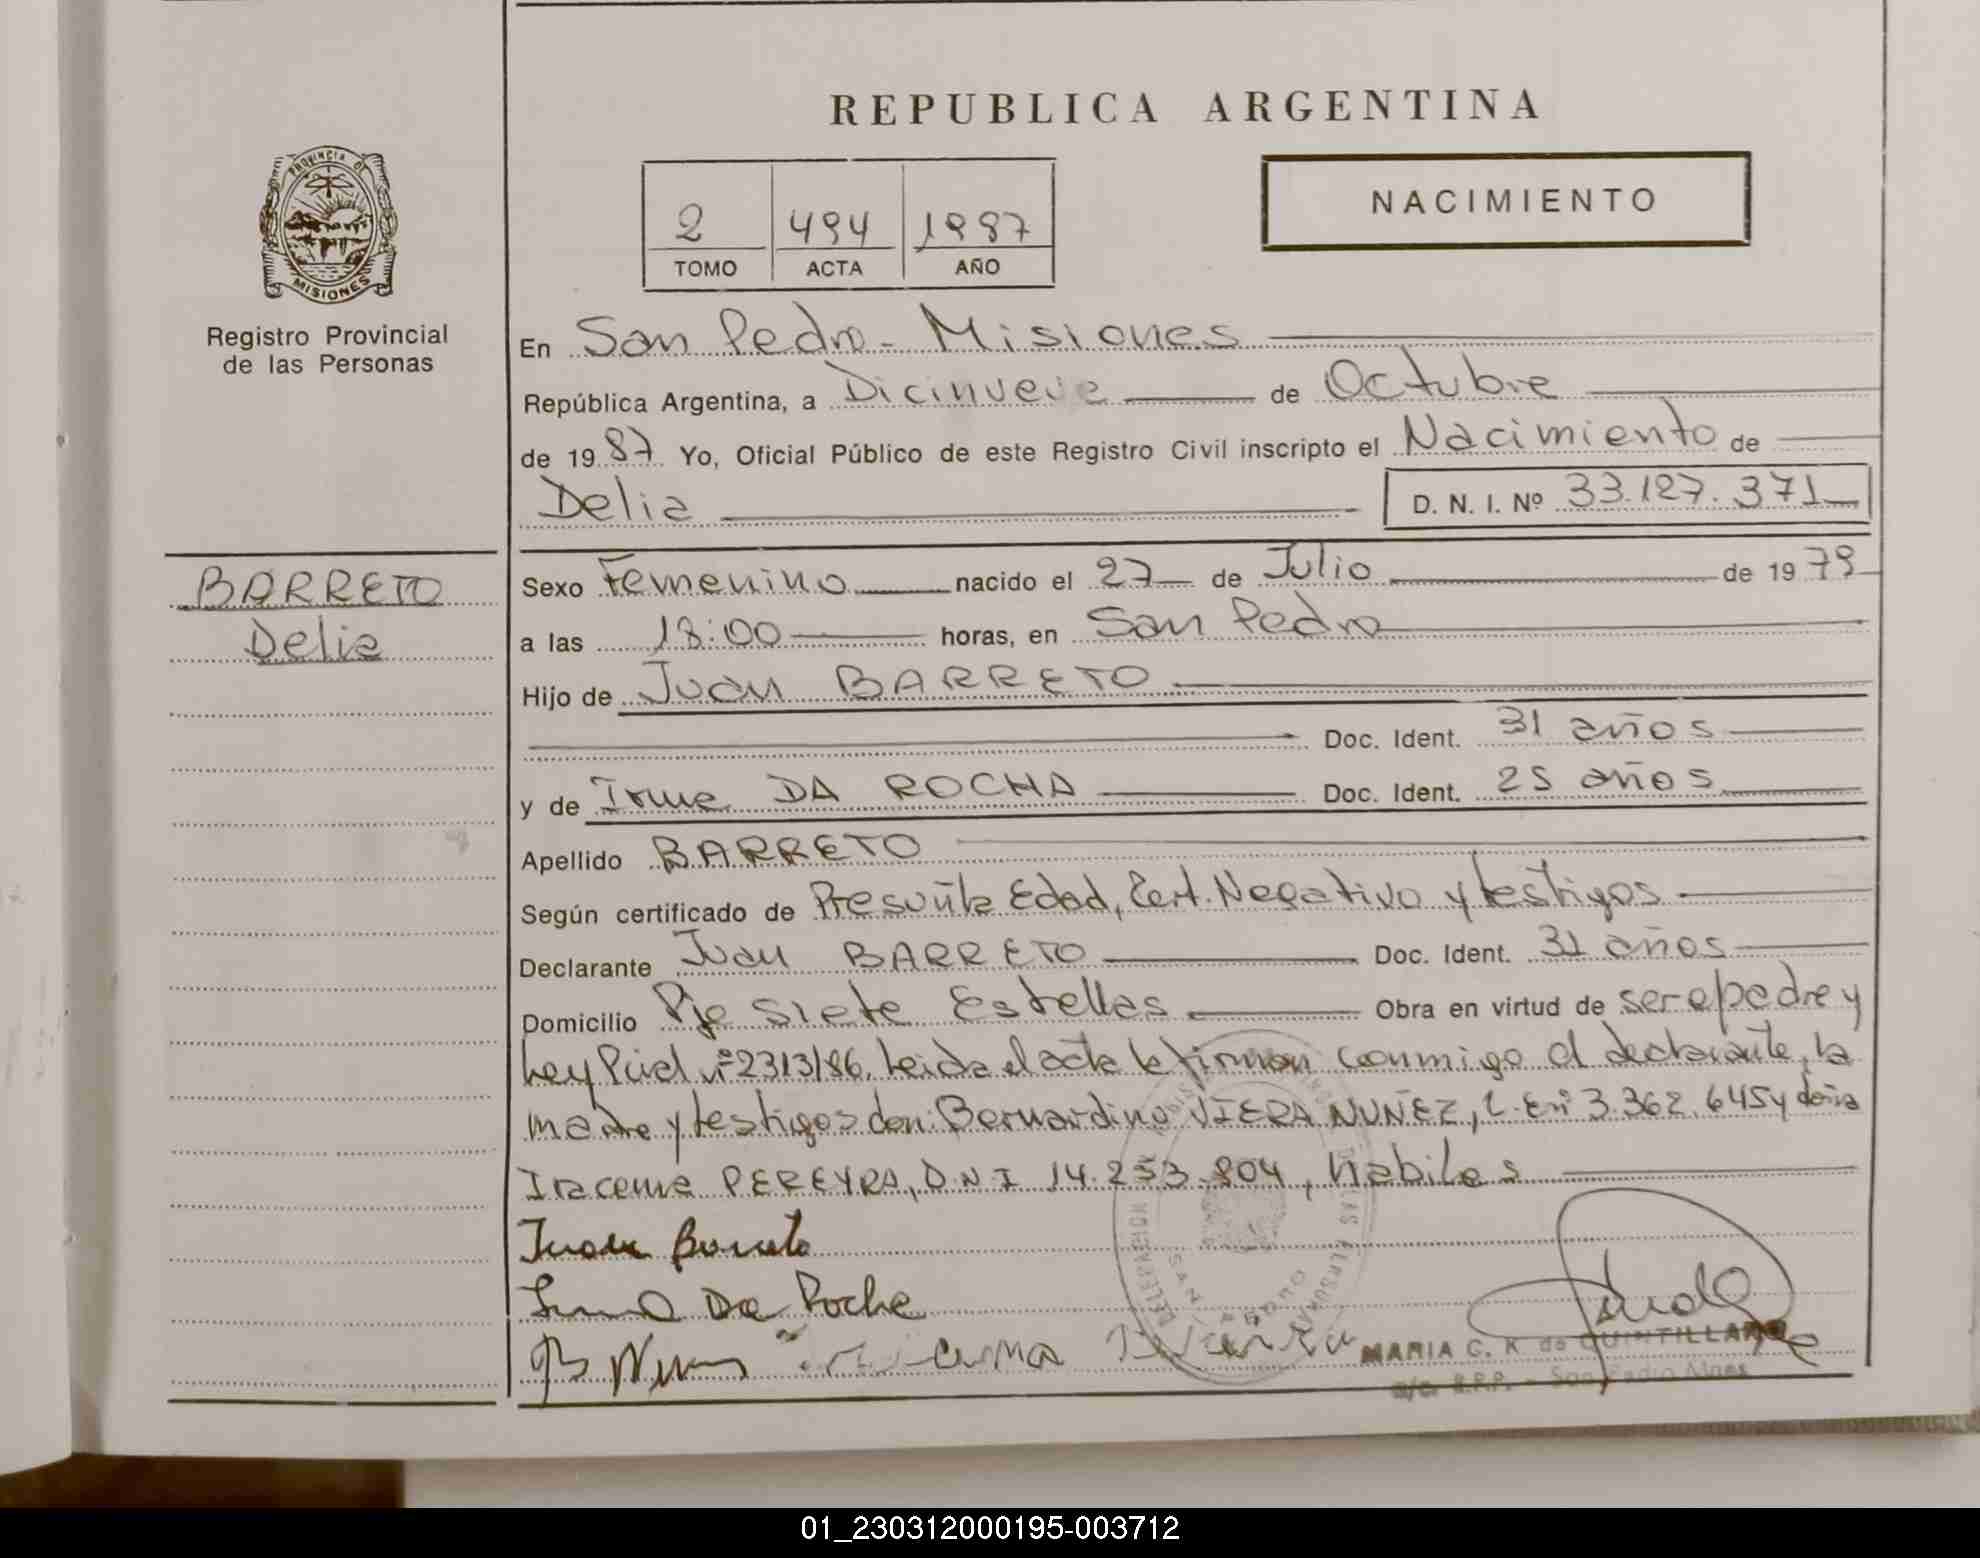 REPUBLICA ARGENTINA
NACIMIENTO
2 494 1987
TOMO ACTA AÑO
PROVINCIA DE
MISIONES
Registro Provincial
de las Personas
En San Pedro - Misiones
República Argentina, a Dicinueve de Octubre
de 19 87 Yo, Oficial Público de este Registro Civil inscripto el Nacimiento de
Delia D. N. I. Nº 33.127.371
BARRETO
Delia
Sexo Femenino nacido el 27 de Julio de 19 79
a las 18:00 horas, en San Pedro
Hijo de Juan BARRETO
Doc. Ident. 31 años
y de Irma DA ROCHA Doc. Ident. 25 años
Apellido BARRETO
Según certificado de Presunta Edad, Cert. Negativo y testigos
Declarante Juan BARRETO Doc. Ident. 31 años
Domicilio Pje Siete Estrellas Obra en virtud de ser el padre y
Ley Pcial nº 2313/86. Leida el acta la firman conmigo el declarante, la
madre y testigos don: Bernardino VIERA NUÑEZ, L.E nº 3.362.645 y doña
Iracema PEREYRA, D.N.I 14.253.804, habiles
Juan Barreto
Irma Da Rocha
MARIA C. K. de QUINTILLAN
a/c. R.P.P. - San Pedro Mnes
01_230312000195-003712